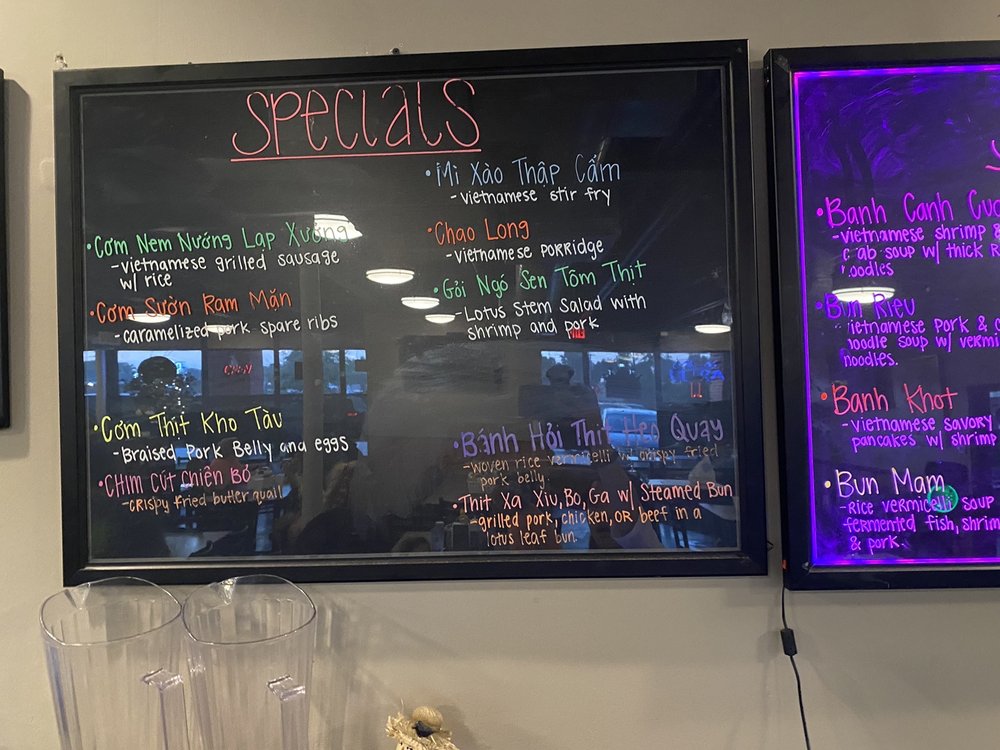 Specials
•Cơm Nem Nướng Lạp Xưởng
-vietnamese grilled sausage
w/ rice
•Cơm Sườn Ram Mặn
-caramelized pork spare ribs
•Cơm Thịt Kho Tàu
-Braised Pork Belly and eggs
•Chim cút chiên bơ
-crispy fried butter quail
•Mì Xào Thập Cẩm
-vietnamese stir fry
•Chao Long
-vietnamese porridge
•Gỏi Ngó Sen Tôm Thịt
-Lotus Stem Salad with
shrimp and pork
•Bánh Hỏi Thịt Heo Quay
-woven rice vermicelli w/ crispy fried
pork belly.
•Thit Xa Xiu, Bo, Ga w/ Steamed Bun
-grilled pork, chicken, OR beef in a
lotus leaf bun.
OPEN
•Banh Canh Cua
-vietnamese shrimp &
crab soup w/ thick
noodles
•Bun Rieu
-vietnamese pork &
noodle soup w/
noodles.
•Banh Khot
-vietnamese savory
pancakes w/ shrimp
•Bun Mam
-rice vermicelli soup
-fermented fish,
& pork.